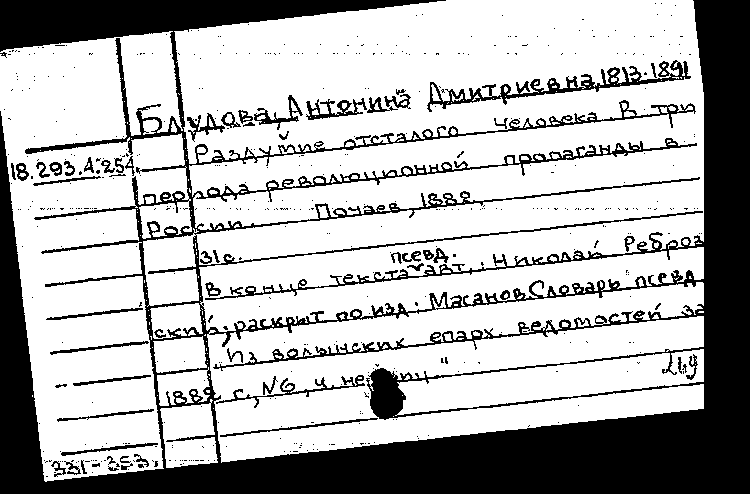 Блудова, Антонина Дмитриевна, 1813-1891
18.293.4.254.
Раздумие отсталого человека. В три
периода революционной пропаганды в
России. Почаев, 1882.
31 с.
псевд.
В конце текста авт.: Николай Реброз
ский, раскрыт по изд.: Масанов. Словарь псевд
"Из волынских епарх. ведомостей за
1882 г., №6, ч. неофиц."
269
331-353.